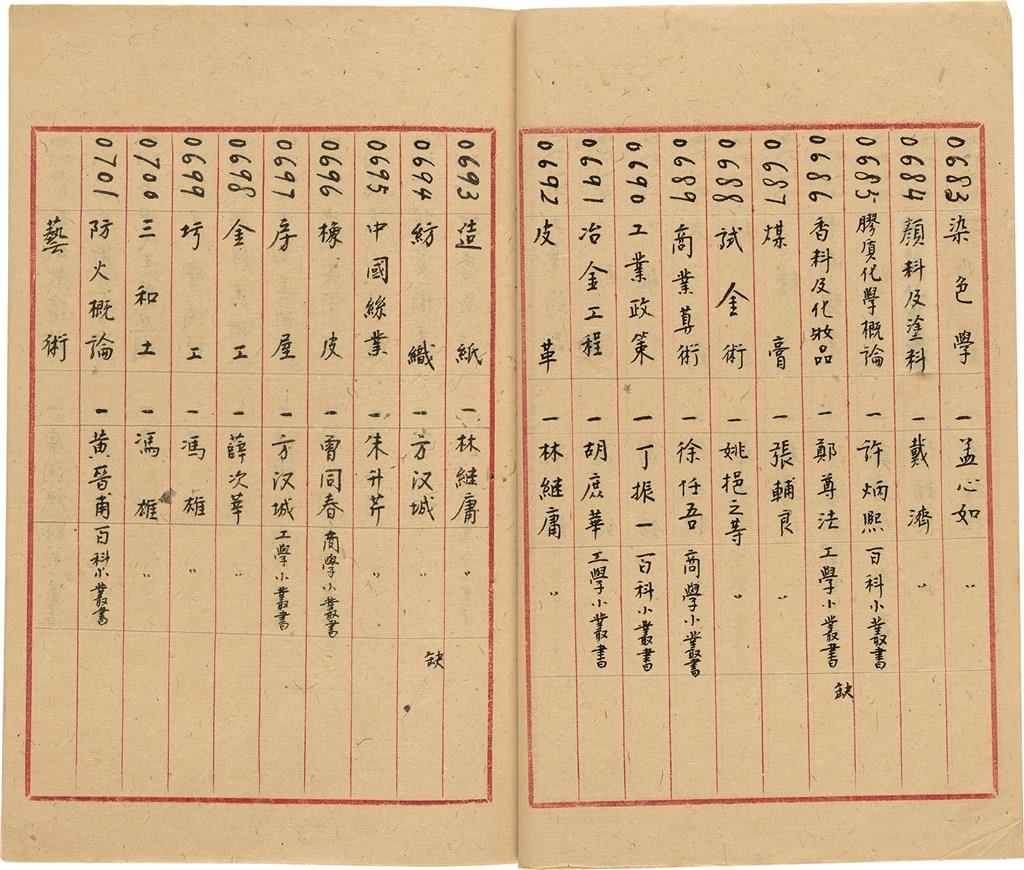 0683 染色學 一 孟心如 〃
0684 顏料及塗料 一 戴濟 〃
0685 膠质化學概論 一 許炳熙 百科小叢書
0686 香料及化妝品 一 鄭尊法 工學小叢書 缺
0687 煤膏 一 張輔良 〃
0688 試金術 一 姚挹之等 〃
0689 商業算術 一 徐任吾 商學小叢書
0690 工業政策 一 丁振一 百科小叢書
0691 冶金工程 一 胡庶華 工學小叢書
0692 皮革 一 林继庸 〃
0693 造紙 一 林继庸 〃
0694 紡織 一 方汉城 〃 缺
0695 中國絲業 一 朱升芹 〃
0696 橡皮 一 曹同春 商學小叢書
0697 房屋 一 方汉城 工學小叢書
0698 金工 一 薛次莘 〃
0699 圬工 一 馮雄 〃
0700 三和土 一 馮雄 〃
0701 防火概論 一 黃晉甫 百科小叢書
藝術